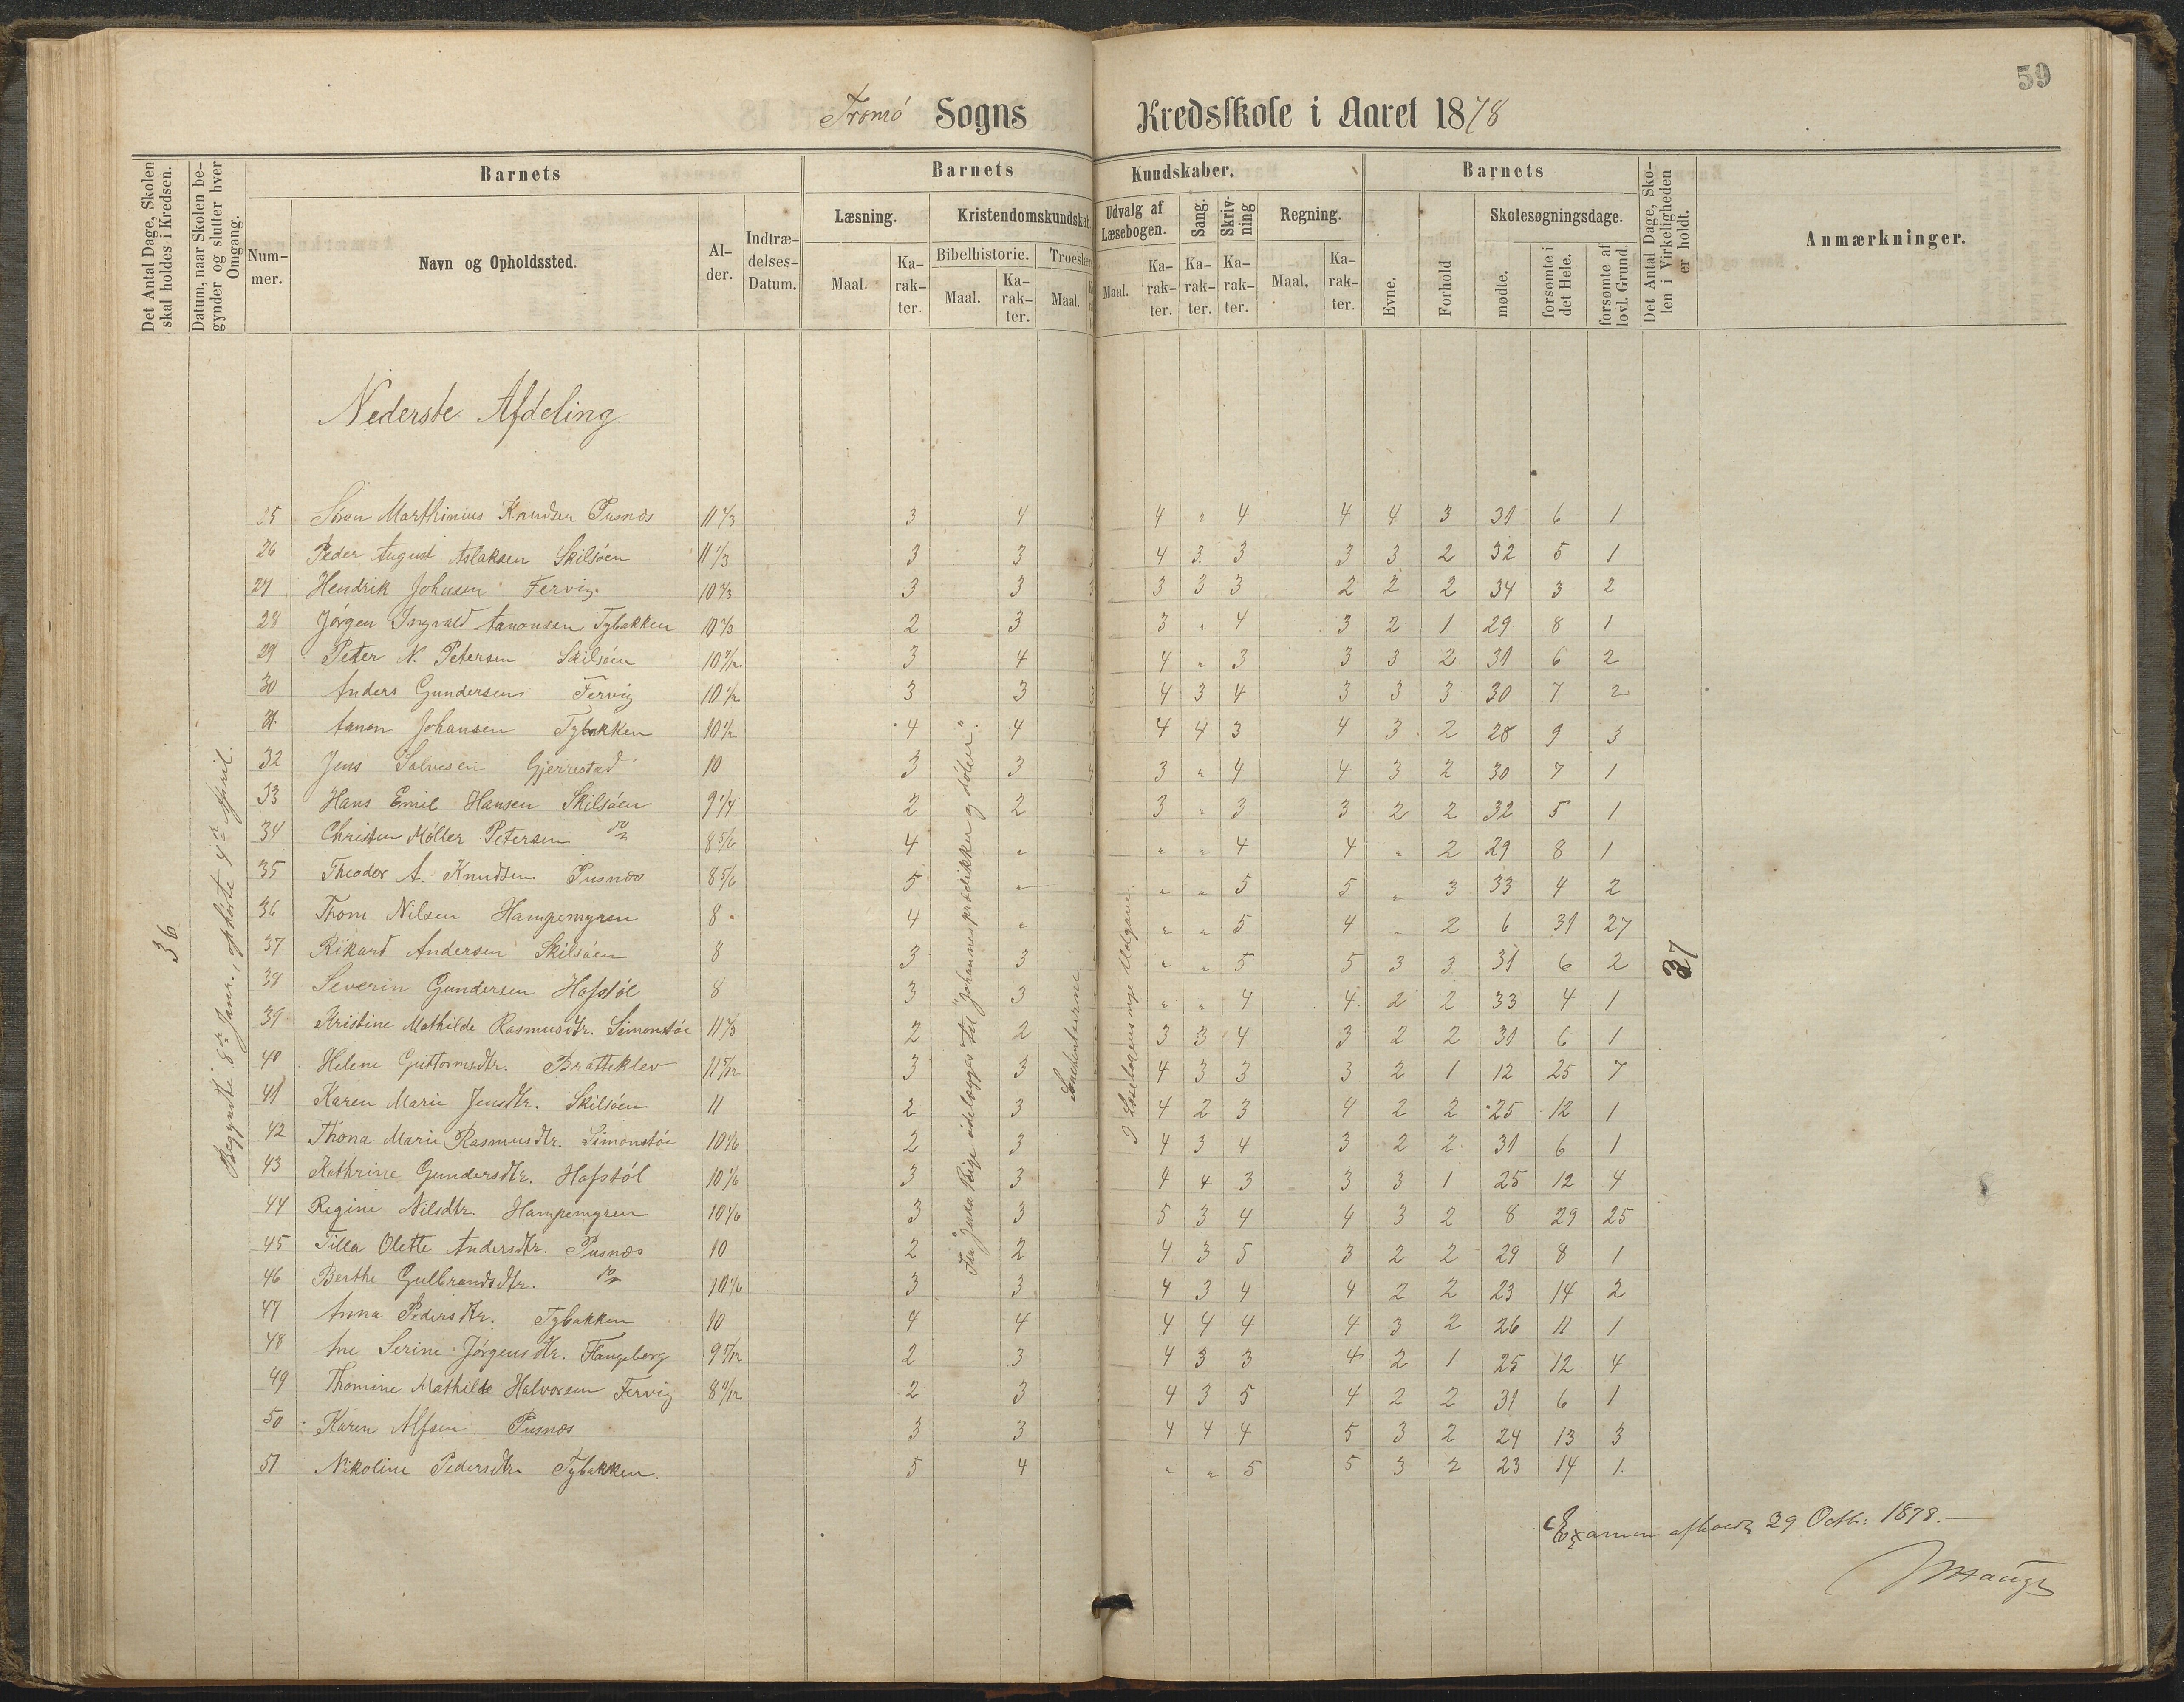 59
Tromö Sogns Kredsskole i Aaret 1878
Det Antal Dage, Skolen skal holdes i Kredsen.
Datum, naar Skolen begynder og slutter hver Omgang.
Barnets
Barnets Kundskaber.
Barnets
Det Antal Dage, Skolen i Virkeligheden er holdt.
Anmærkninger.
Nummer.
Navn og Opholdssted.
Alder.
Indtrædelses-Datum.
Læsning.
Kristendomskundskab
Udvalg af Læsebogen.
Sang.
Skrivning
Regning.
Evne.
Forhold
Skolesøgningsdage.
Bibelhistorie.
Troeslære
Maal.
Karakter.
Maal.
Karakter.
Maal.
Maal.
Karakter.
Karakter.
Karakter.
Maal.
Karakter.
mødte.
forsømte i det Hele.
forsømte af lovl. Grund.
Nederste Afdeling.
36
Begyndte 8de Janr., ophørte 4de April.
Fra "Juda Rige ødelægges" til "Johannes prædikker og døber".
I Læsebogens nye Udgave.
37
25 Søren Marthinius Knudsen Pusnes 11 2/3 3 4 4 " 4 4 4 3 31 6 1
26 Peder August Aslaksen Skilsöen 11 1/3 3 3 4 3 3 3 3 2 32 5 1
27 Hendrik Johnsen Fervig. 10 2/3 3 3 3 3 3 2 2 2 34 3 2
28 Jörgen Ingvald Aanonsen Tybakken 10 2/3 2 3 3 " 4 3 2 1 29 8 1
29 Peter N. Petersen Skilsöen 10 7/12 3 4 4 " 3 3 3 2 31 6 2
30 Anders Gundersen Fervig 10 1/2 3 3 4 3 4 3 3 3 30 7 2
31 Aanon Johansen Tybakken 10 1/2 4 4 4 4 3 4 3 2 28 9 3
32 Jens Salvesen Gjerrestad 10 3 3 3 " 4 4 3 2 30 7 1
33 Hans Emil Hansen Skilsöen 9 1/4 2 2 3 " 3 3 2 2 32 5 1
34 Christen Möller Petersen do 8 5/6 4 " " " 4 4 " 2 29 8 1
35 Theodor A. Knudsen Pusnes 8 5/6 5 " " " 5 5 " 3 33 4 2
36 Thom Nilsen Hampemyren 8 4 " " " 5 4 " 2 6 31 27
37 Rikard Andersen Skilsöen 8 3 3 " " 5 5 3 3 31 6 2
38 Severin Gundersen Hofstöl 8 3 3 " " 4 4 2 2 33 4 1
39 Kristine Mathilde Rasmusdtr. Simonstöe 11 2/3 2 2 3 3 4 3 2 2 31 6 1
40 Helene Guttormsdtr. Bratteklev 11 5/12 3 3 4 3 3 3 2 1 12 25 7
41 Karen Marie Jensdtr. Skilsöen 11 2 3 4 2 3 4 2 2 25 12 1
42 Thona Marie Rasmusdtr. Simonstöe 10 1/6 2 3 4 3 4 3 2 2 31 6 1
43 Kathrine Gundersdtr. Hofstöl 10 1/6 3 3 4 4 3 3 3 1 25 12 4
44 Regine Nilsdtr. Hampemyren 10 1/6 3 3 5 3 4 4 3 2 8 29 25
45 Tilla Olette Andersdtr. Pusnes 10 2 2 4 3 5 3 2 2 29 8 1
46 Berthe Gulbrandsdtr. do 10 1/6 3 3 4 3 4 4 2 2 23 14 2
47 Anna Pedersdtr. Tybakken 10 4 4 4 4 4 4 3 2 26 11 1
48 Ane Serine Jörgensdtr. Hangeberg 9 5/12 2 3 4 3 3 4 2 1 25 12 4
49 Thomine Mathilde Halvorsen Fervig 8 11/12 2 3 4 3 5 4 2 2 31 6 1
50 Karen Alfsen Pusnes 3 3 4 4 4 5 3 2 24 13 3
51 Nikoline Pedersdtr. Tybakken. 5 4 " " 5 5 3 2 23 14 1.
Examen afholdt 29 Octbr. 1878.—